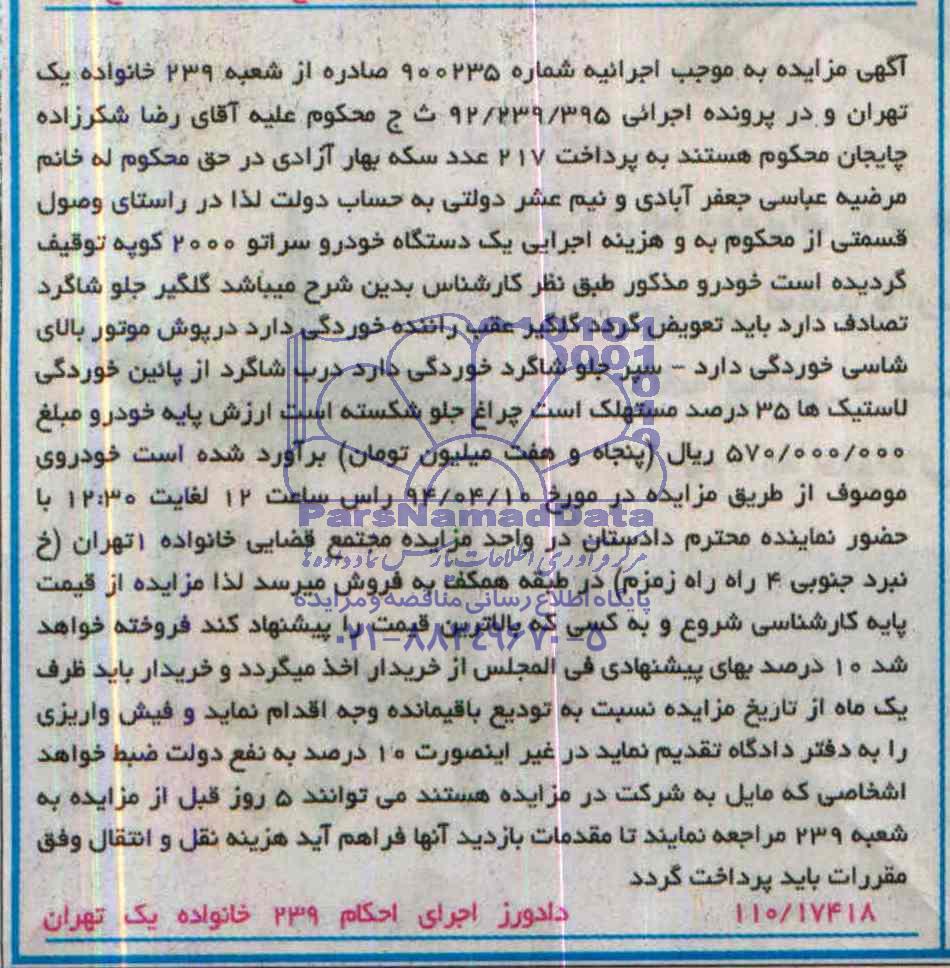 آگهی مزایده به موجب اجرائیه شماره ۹۰۰۲۳۵ صادره از شعبه ۲۳۹ خانواده یک
تهران و در پرونده اجرائی ۹۲/۲۳۹/۳۹۵ ث ج محکوم علیه آقای رضا شکرزاده
چایجان محکوم هستند به پرداخت ۲۱۷ عدد سکه بهار آزادی در حق محکوم له خانم
مرضیه عباسی جعفر آبادی و نیم عشر دولتی به حساب دولت لذا در راستای وصول
قسمتی از محکوم به و هزینه اجرایی یک دستگاه خودرو سراتو ۲۰۰۰ کوپه توقیف
گردیده است خودرو مذکور طبق نظر کارشناس بدین شرح میباشد گلگیر جلو شاگرد
تصادف دارد باید تعویض گردد گلگیر عقب راننده خوردگی دارد درپوش موتور بالای
شاسی خوردگی دارد – سپر جلو شاگرد خوردگی دارد درب شاگرد از پائین خوردگی
لاستیک ها ۳۵ درصد مستهلک است چراغ جلو شکسته است ارزش پایه خودرو مبلغ
۵۷۰/۰۰۰/۰۰۰ ریال (پنجاه و هفت میلیون تومان) برآورد شده است خودروی
موصوف از طریق مزایده در مورخ ۹۴/۰۴/۱۰ راس ساعت ۱۲ لغایت ۱۲:۳۰ با
حضور نماینده محترم دادستان در واحد مزایده مجتمع قضایی خانواده ۱تهران (خ
نبرد جنوبی ۴ راه راه زمزم) در طبقه همکف به فروش میرسد لذا مزایده از قیمت
پایه کارشناسی شروع و به کسی که بالاترین قیمت را پیشنهاد کند فروخته خواهد
شد ۱۰ درصد بهای پیشنهادی فی المجلس از خریدار اخذ میگردد و خریدار باید ظرف
یک ماه از تاریخ مزایده نسبت به تودیع باقیمانده وجه اقدام نماید و فیش واریزی
را به دفتر دادگاه تقدیم نماید در غیر اینصورت ۱۰ درصد به نفع دولت ضبط خواهد
اشخاصی که مایل به شرکت در مزایده هستند می توانند ۵ روز قبل از مزایده به
شعبه ۲۳۹ مراجعه نمایند تا مقدمات بازدید آنها فراهم آید هزینه نقل و انتقال وفق
مقررات باید پرداخت گردد
۱۱۰/۱۷۴۱۸ دادورز اجرای احکام ۲۳۹ خانواده یک تهران
ParsNamadData
مرکز فرآوری اطلاعات پارس نماد داده ها
پایگاه اطلاع رسانی مناقصه و مزایده
۰۲۱-۸۸۳۴۹۶۷۰-۵